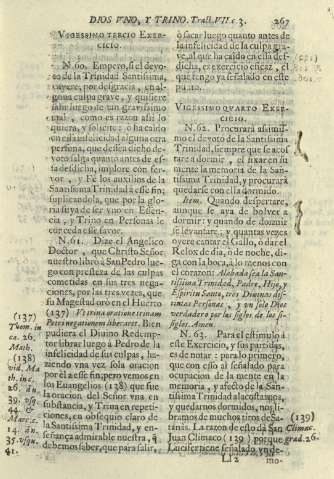 DIOS VNO, Y TRINO. Tract. VII. c. 3. 267
VIGESSIMO TERCIO EXER-
CICIO.
N. 60. Empero, si el devo-
to de la Trinidad Santissima,
cayere, por desgracia, en al-
guna culpa grave, y quisiere
salir luego de tan gravissimo
mal, como es razon assi lo
quiera, y solicite; ò ha caido
en essa infelicidad alguna otra
persona, que desea dicho de-
voto salga quanto antes de es-
sa desdicha, implore con fer-
vor, y Fè los auxilios de la
Santissima Trinidad à este fin;
suplicandola, que por la glo-
ria suya de ser vno en Essen-
cia, y Trina en Personas le
conceda esse favor.
N. 61. Dize el Angelico
Doctor, que Christo Señor
nuestro librò à San Pedro lue-
go con presteza de las culpas
cometidas en sus tres nega-
ciones, por las tres vezes, que
su Magestad orò en el Huerto:
(137) Vt trina oratione trinam
Petri negationem liberaret. Bien
pudiera el Divino Redemp-
tor librar luego à Pedro de la
infelicidad de sus culpas, ha-
ziendo vna vez sola oracion
por èl à este fin; pero vemos en
los Euangelios (138) que fue
la oracion del Señor vna en
substancia, y Trina en repeti-
ciones, en obsequio claro de
la Santissima Trinidad, y en-
señança admirable nuestra, q̃
debemos saber, que para salir,
(137)
Thom. in
ca. 26.
Math.
(138)
41.
ò sacar luego quanto antes de
la infelicidad de la culpa gra-
ve, al que ha caido en essa des-
dicha, es exercicio eficaz, el
que tengo ya señalado en este
VIGESSIMO QUARTO EXER-
CICIO.
N. 62. Procurarà assimis-
mo el devoto de la Santissima
Trinidad, siempre que se acos-
tare à dormir, el fixar en su
mente la memoria de la San-
tissima Trinidad, y procurarà
quedarse con ella dormido.
Item. Quando despertare,
aunque se aya de bolver à
dormir; y quando de dormir
se levantare; y quantas vezes
oyere cantar el Gallo, ò dar el
Relox de dia, ò de noche, di-
ga con la boca, à lo menos con
el corazon: Alabada sea la San-
tissima Trinidad, Padre, Hijo, y
Espiritu Santo, tres Divinas dis-
tintas Personas, y un solo Dios
verdadero por los siglos de los si-
glos. Amen.
N. 63. Para el estimulo à
este Exercicio, y sus partidas,
es de notar: para lo primero,
que con esso al señalado para
ocupacion de la mente en la
memoria, y afecto de la San-
tissima Trinidad al acostarnos,
y quedarnos dormidos, nos li-
bramos de muchos tiros de Sa-
tanàs. La razon de esto dà San
Juan Climaco (139) porque
Lucifer tiene señalado vn de-
(139)
grad. 26.
Ll 2 mo-